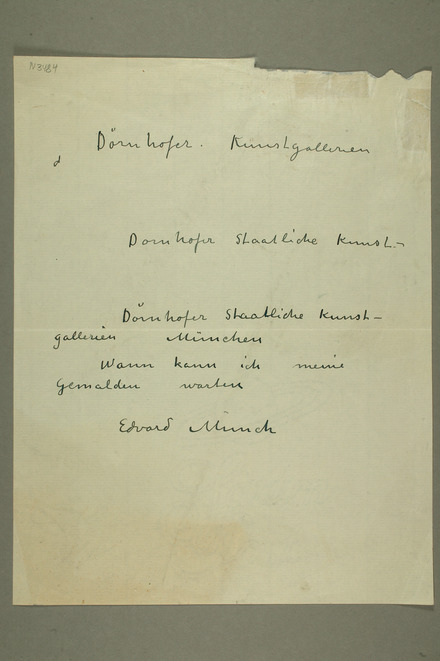 N3484
Dörnhofer. Kunstgallerien
d
Dornhofer Staatliche Kunst.-
Dörnhofer Staatliche Kunst-
gallerien München
Wann kann ich meine
Gemalden warten
Edvard Munch